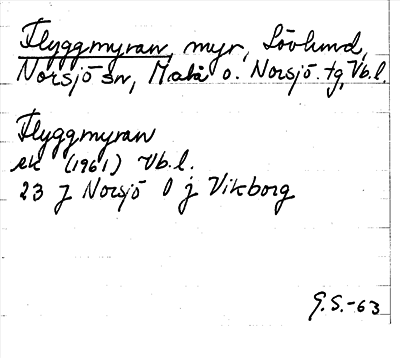 Flyggmyran, myr, Lövlund,
Norsjö sn, Malå o. Norsjö tg, Vb.l.
Flyggmyran
ek (1961) Vb.l.
23 J Norsjö 0 j Vikborg
G.S.-63